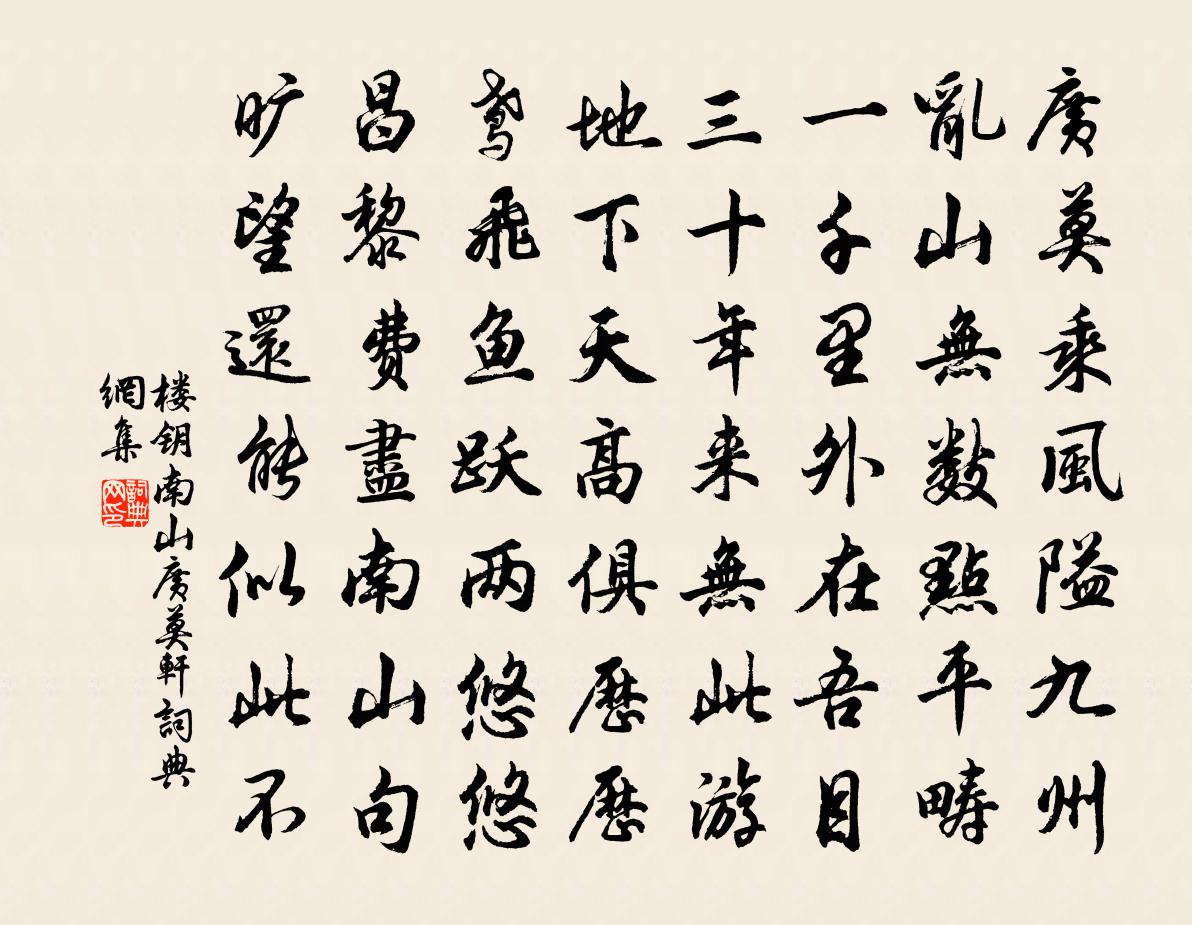 廣莫乘風隘九州
亂山無數點平疇
一千里外在吾目
三十年来無此游
地下天高俱歷歷
鸢飛鱼跃两悠悠
昌黎費盡南山句
旷望還能似此不
楼钥南山廣莫軒詞典
網集
詞典网印